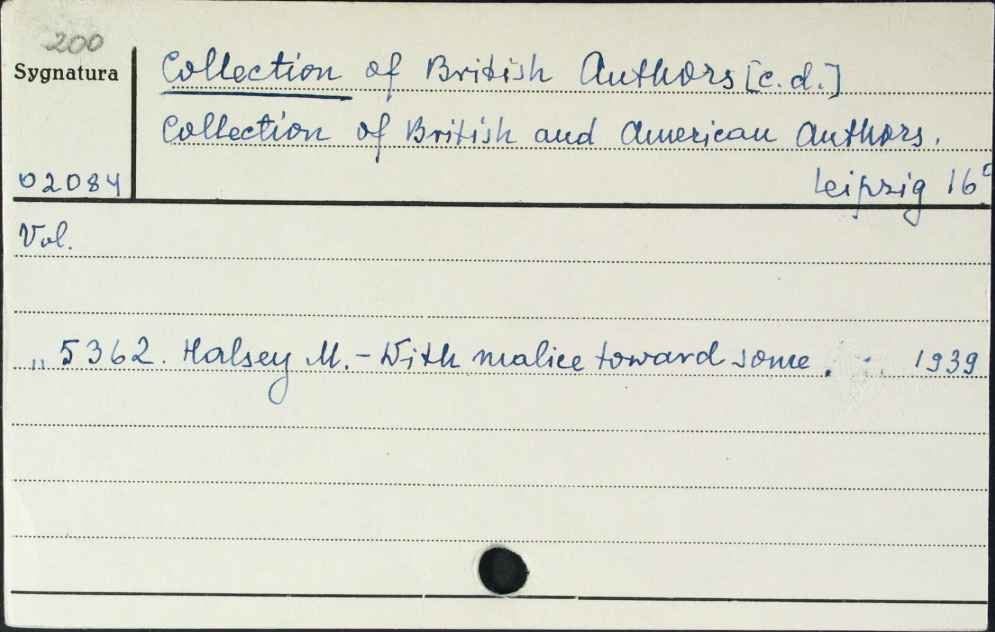 200
Sygnatura
Collection of British Authors [c.d.]
Collection of British and American Authors.
02084
Leipzig 16°
Vol.
„ 5362. Halsey M. - With malice toward some. 1939